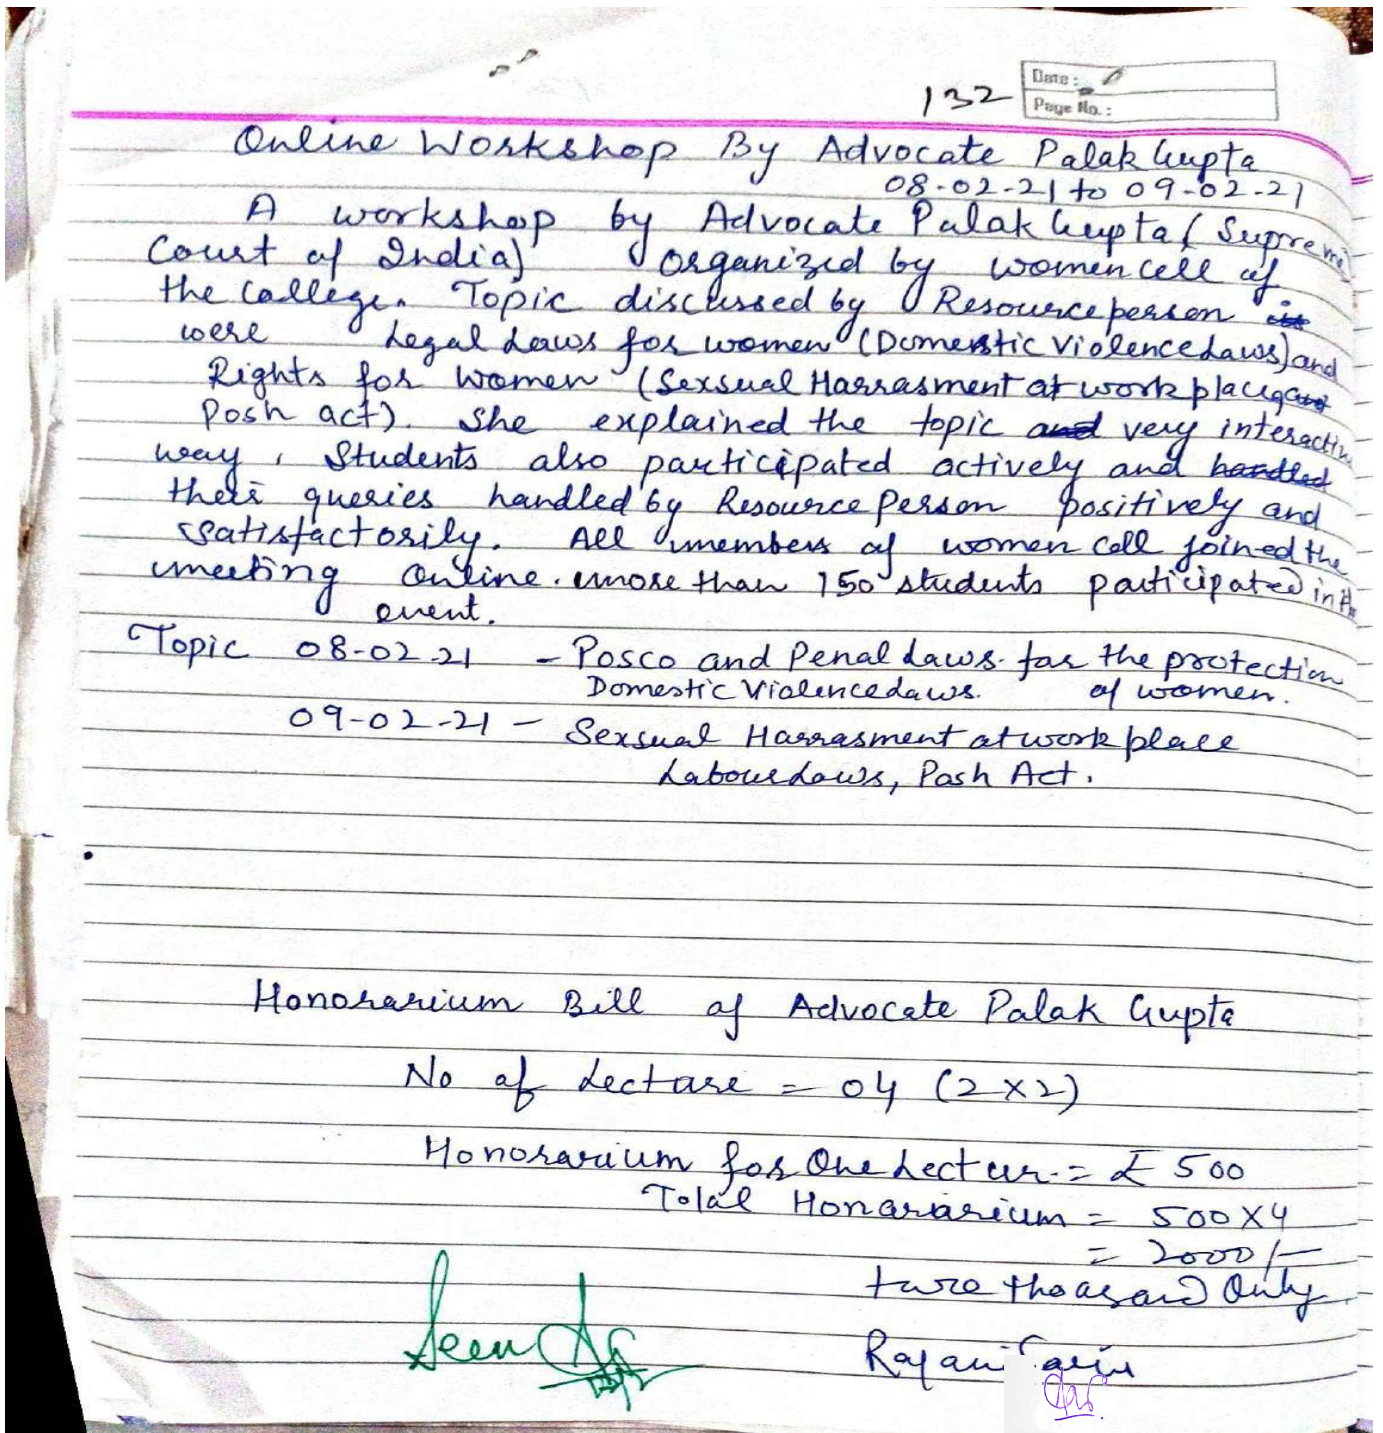 132
Date :
Page No. :
Online Workshop By Advocate Palak Gupta
08-02-21 to 09-02-21
A workshop by Advocate Palak Gupta (Supreme
Court of India) organized by women cell of
the College. Topic discussed by Resource person
were Legal Laws for women (Domenstic Violence Laws) and
Rights for Women (Sexsual Harrasment at work place
Posh act). She explained the topic and very interactive
way, Students also participated actively and handled
their queries handled by Resource Person positively and
satisfactorily. All members of women cell joined the
meeting online. more than 150 students participated in the
event.
Topic 08-02-21 - Posco and Penal Laws for the protection
Domestic Violence Laws. of women.
09-02-21 - Sexsual Harrasment at work place
Labour Laws, Posh Act.
Honorarium Bill of Advocate Palak Gupta
No of Lecture = 04 (2×2)
Honorarium for One Lectur = ₹ 500
Total Honararium = 500×4
= 2000/-
two thousand Only
Seen
Rajani